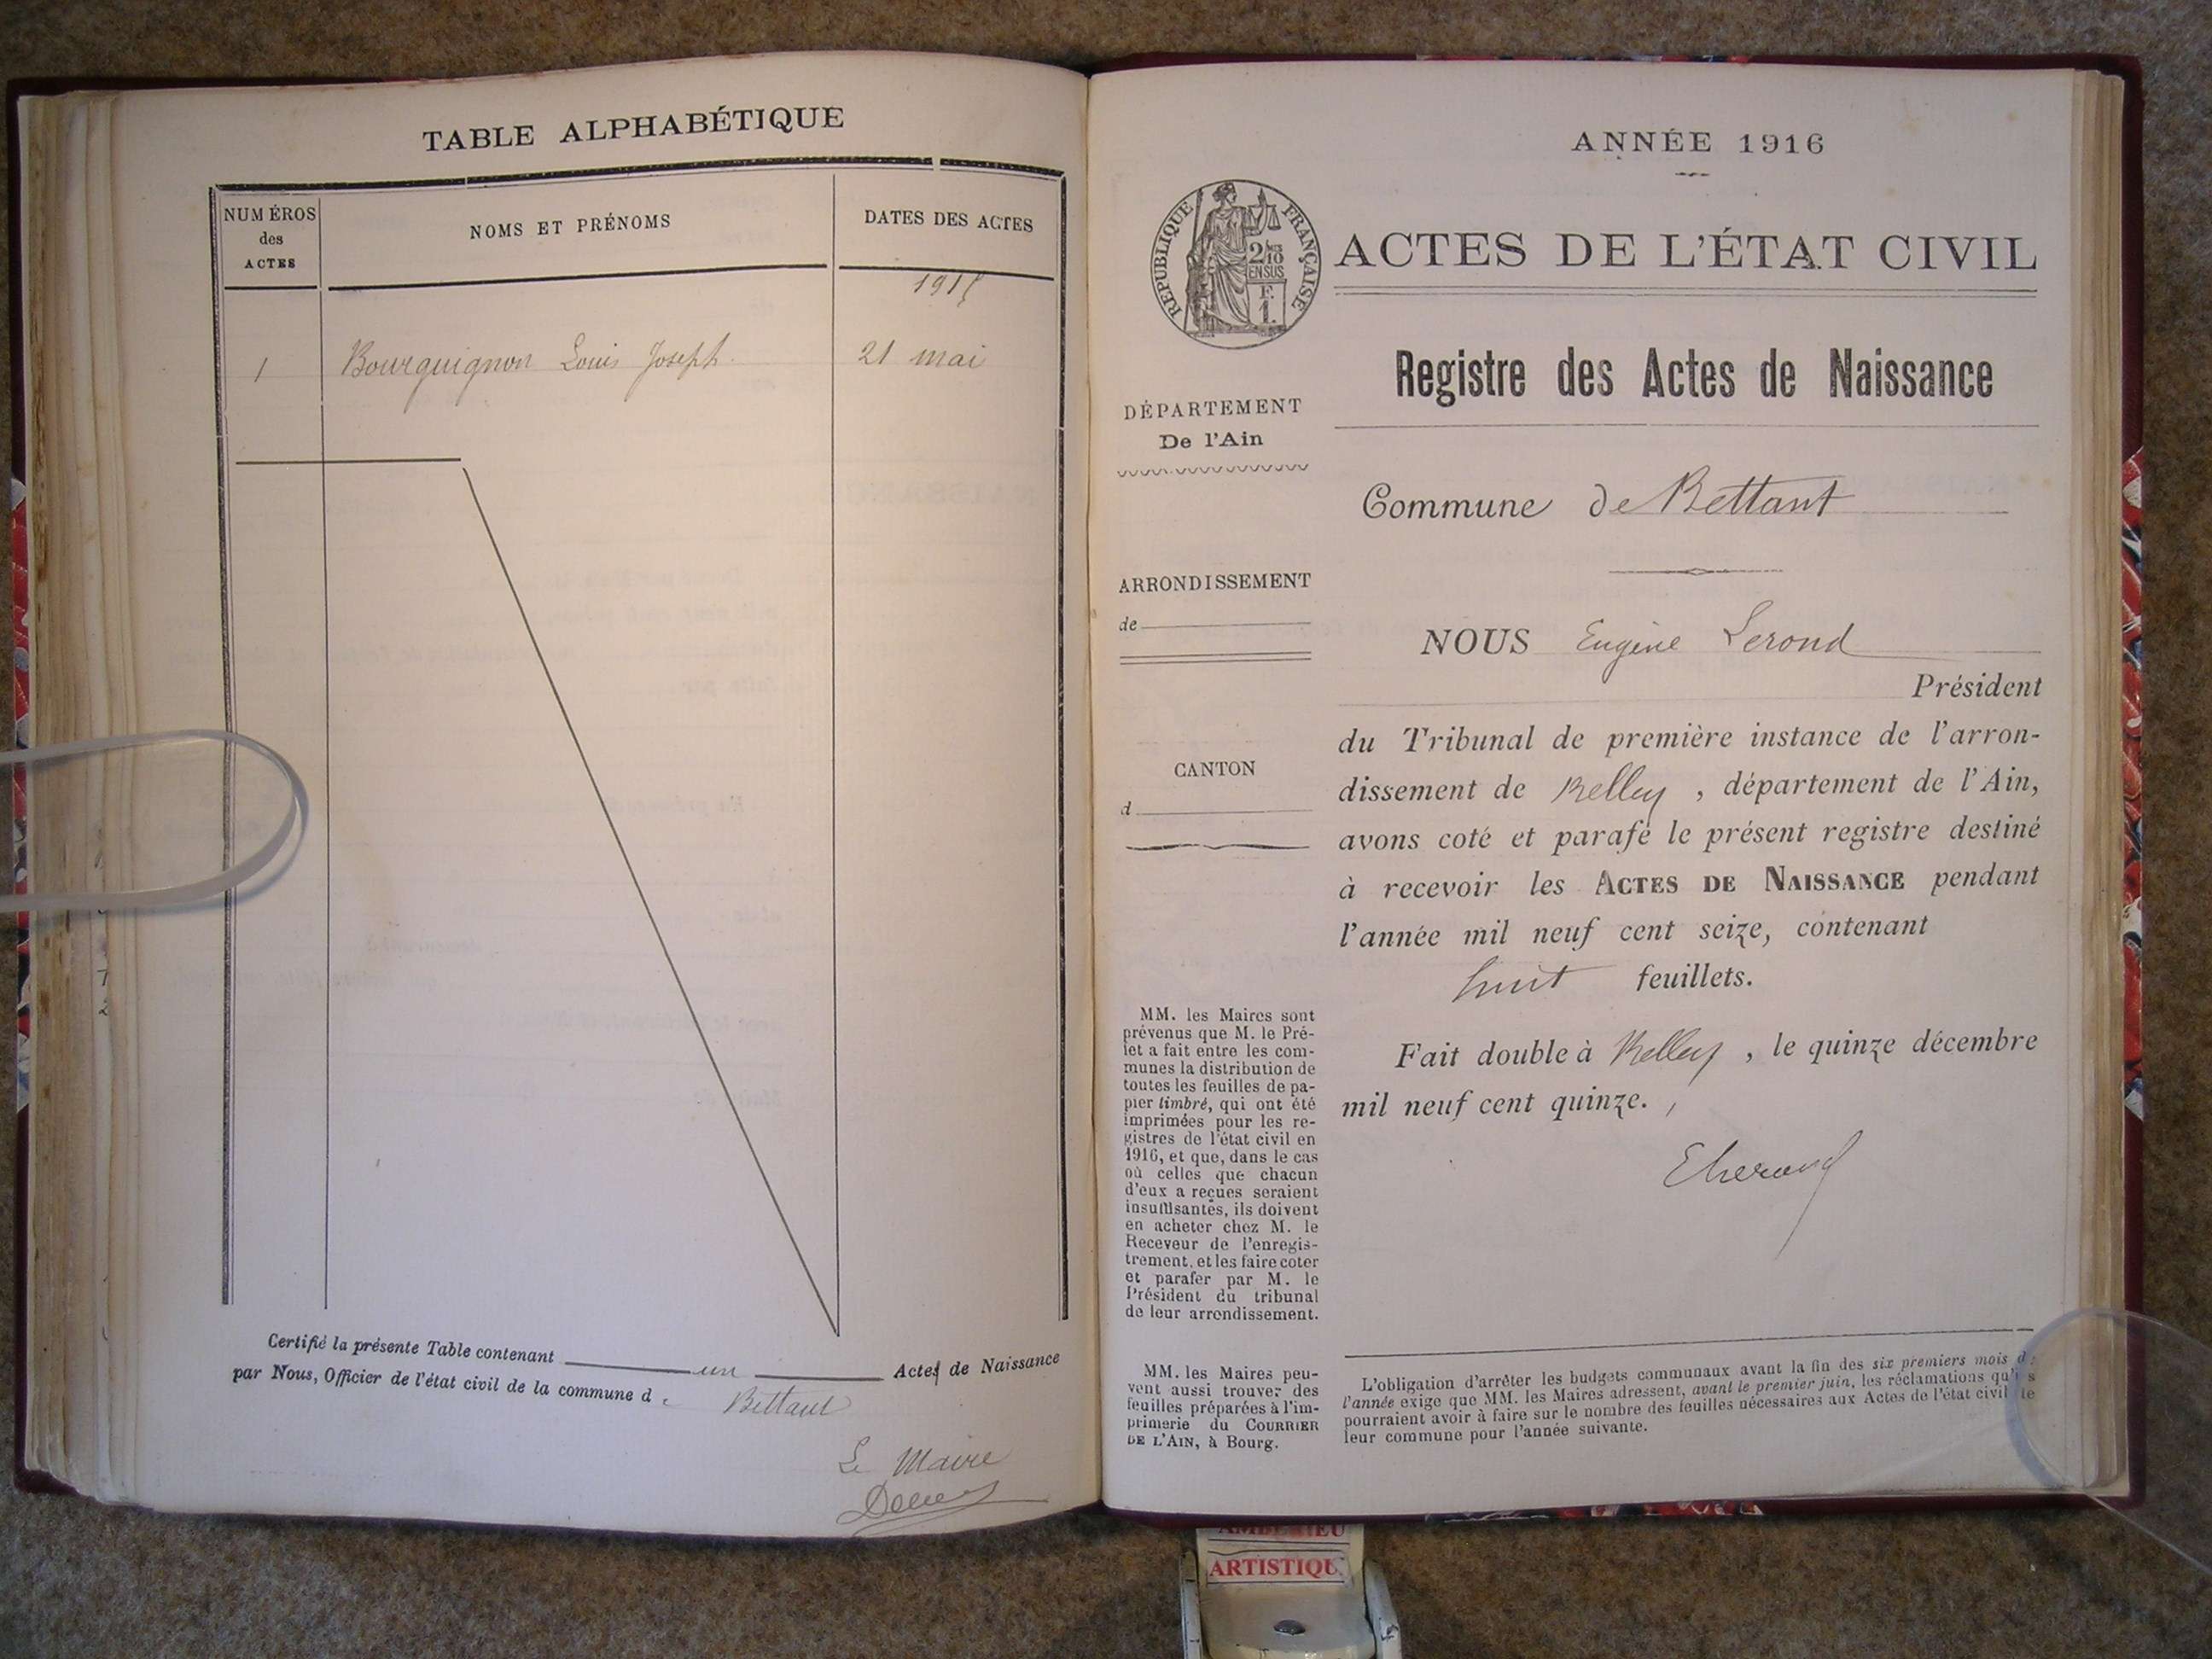 TABLE ALPHABÉTIQUE
NUMÉROS
des
ACTES
NOMS ET PRÉNOMS
DATES DES ACTES
1915
1 Bourguignon Louis Joseph. 21 mai
Certifié la présente Table contenant un Actes de Naissance
par Nous, Officier de l'état civil de la commune de Bettant
Le Maire
ANNÉE 1916
RÉPUBLIQUE FRANÇAISE
2/10
EN SUS
F.
1.
ACTES DE L'ÉTAT CIVIL
Registre des Actes de Naissance
DÉPARTEMENT
De l'Ain
Commune de Bettant
ARRONDISSEMENT
de
NOUS Eugène Lerond
Président
du Tribunal de première instance de l'arron-
CANTON
d
dissement de Belley, département de l'Ain,
avons coté et parafé le présent registre destiné
à recevoir les ACTES DE NAISSANCE pendant
l'année mil neuf cent seize, contenant
huit feuillets.
Fait double à Belley, le quinze décembre
mil neuf cent quinze.
MM. les Maires sont
prévenus que M. le Pré-
fet a fait entre les com-
munes la distribution de
toutes les feuilles de pa-
pier timbré, qui ont été
imprimées pour les re-
gistres de l'état civil en
1916, et que, dans le cas
où celles que chacun
d'eux a reçues seraient
insuffisantes, ils doivent
en acheter chez M. le
Receveur de l'enregis-
trement, et les faire coter
et parafer par M. le
Président du tribunal
de leur arrondissement.
MM. les Maires peu-
vent aussi trouver des
feuilles préparées à l'im-
primerie du COURRIER
DE L'AIN, à Bourg.
L'obligation d'arrêter les budgets communaux avant la fin des six premiers mois de
l'année exige que MM. les Maires adressent, avant le premier juin, les réclamations qu'ils
pourraient avoir à faire sur le nombre des feuilles nécessaires aux Actes de l'état civil de
leur commune pour l'année suivante.
AMBERIEU
ARTISTIQU